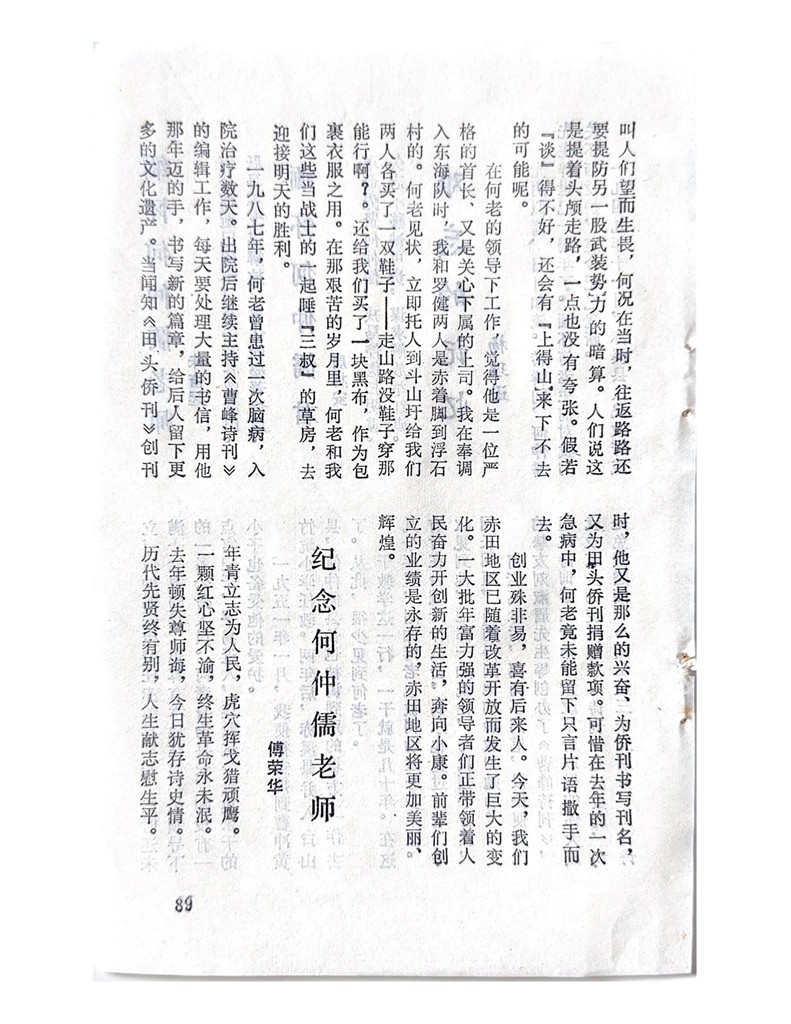 叫人们望而生畏，何况在当时，往返路路还
要提防另一股武装势力的暗算。人们说这
是提着头颅走路，一点也没有夸张。假若
『谈』得不好，还会有『上得山』来下不去
的可能呢。
在何老的领导下工作，觉得他是一位严
格的首长、又是关心下属的上司。我在奉调
入东海队时，我和罗健两人是赤着脚到浮石
村的。何老见状，立即托人到斗山圩给我们
两人各买了一双鞋子——走山路没鞋子穿那
能行啊？。还给我们买了一块黑布，作为包
裹衣服之用。在那艰苦的岁月里，何老和我
们这些当战士的一起睡『三叔』的草房，去
迎接明天的胜利。
一九八七年，何老曾患过一次脑病，入
院治疗数天。出院后继续主持《曹峰诗刊》
的编辑工作，每天要处理大量的书信，用他
那年迈的手，书写新的篇章，给后人留下更
多的文化遗产。当闻知《田头侨刊》创刊
时，他又是那么的兴奋、为侨刊书写刊名，
又为田头侨刊捐赠款项。可惜在去年的一次
急病中，何老竟未能留下只言片语撒手而
去。
创业殊非易，喜有后来人。今天，我们
赤田地区已随着改革开放而发生了巨大的变
化。一大批年富力强的领导者们正带领着人
民奋力开创新的生活，奔向小康。前辈们创
立的业绩是永存的，赤田地区将更加美丽，
辉煌。
纪念何仲儒老师
傅荣华
年青立志为人民，虎穴挥戈猎顽鹰。
一颗红心坚不渝，终生革命永未泯。
去年顿失尊师诲，今日犹存诗史情。
历代先贤终有别，人生献志慰生平。
89